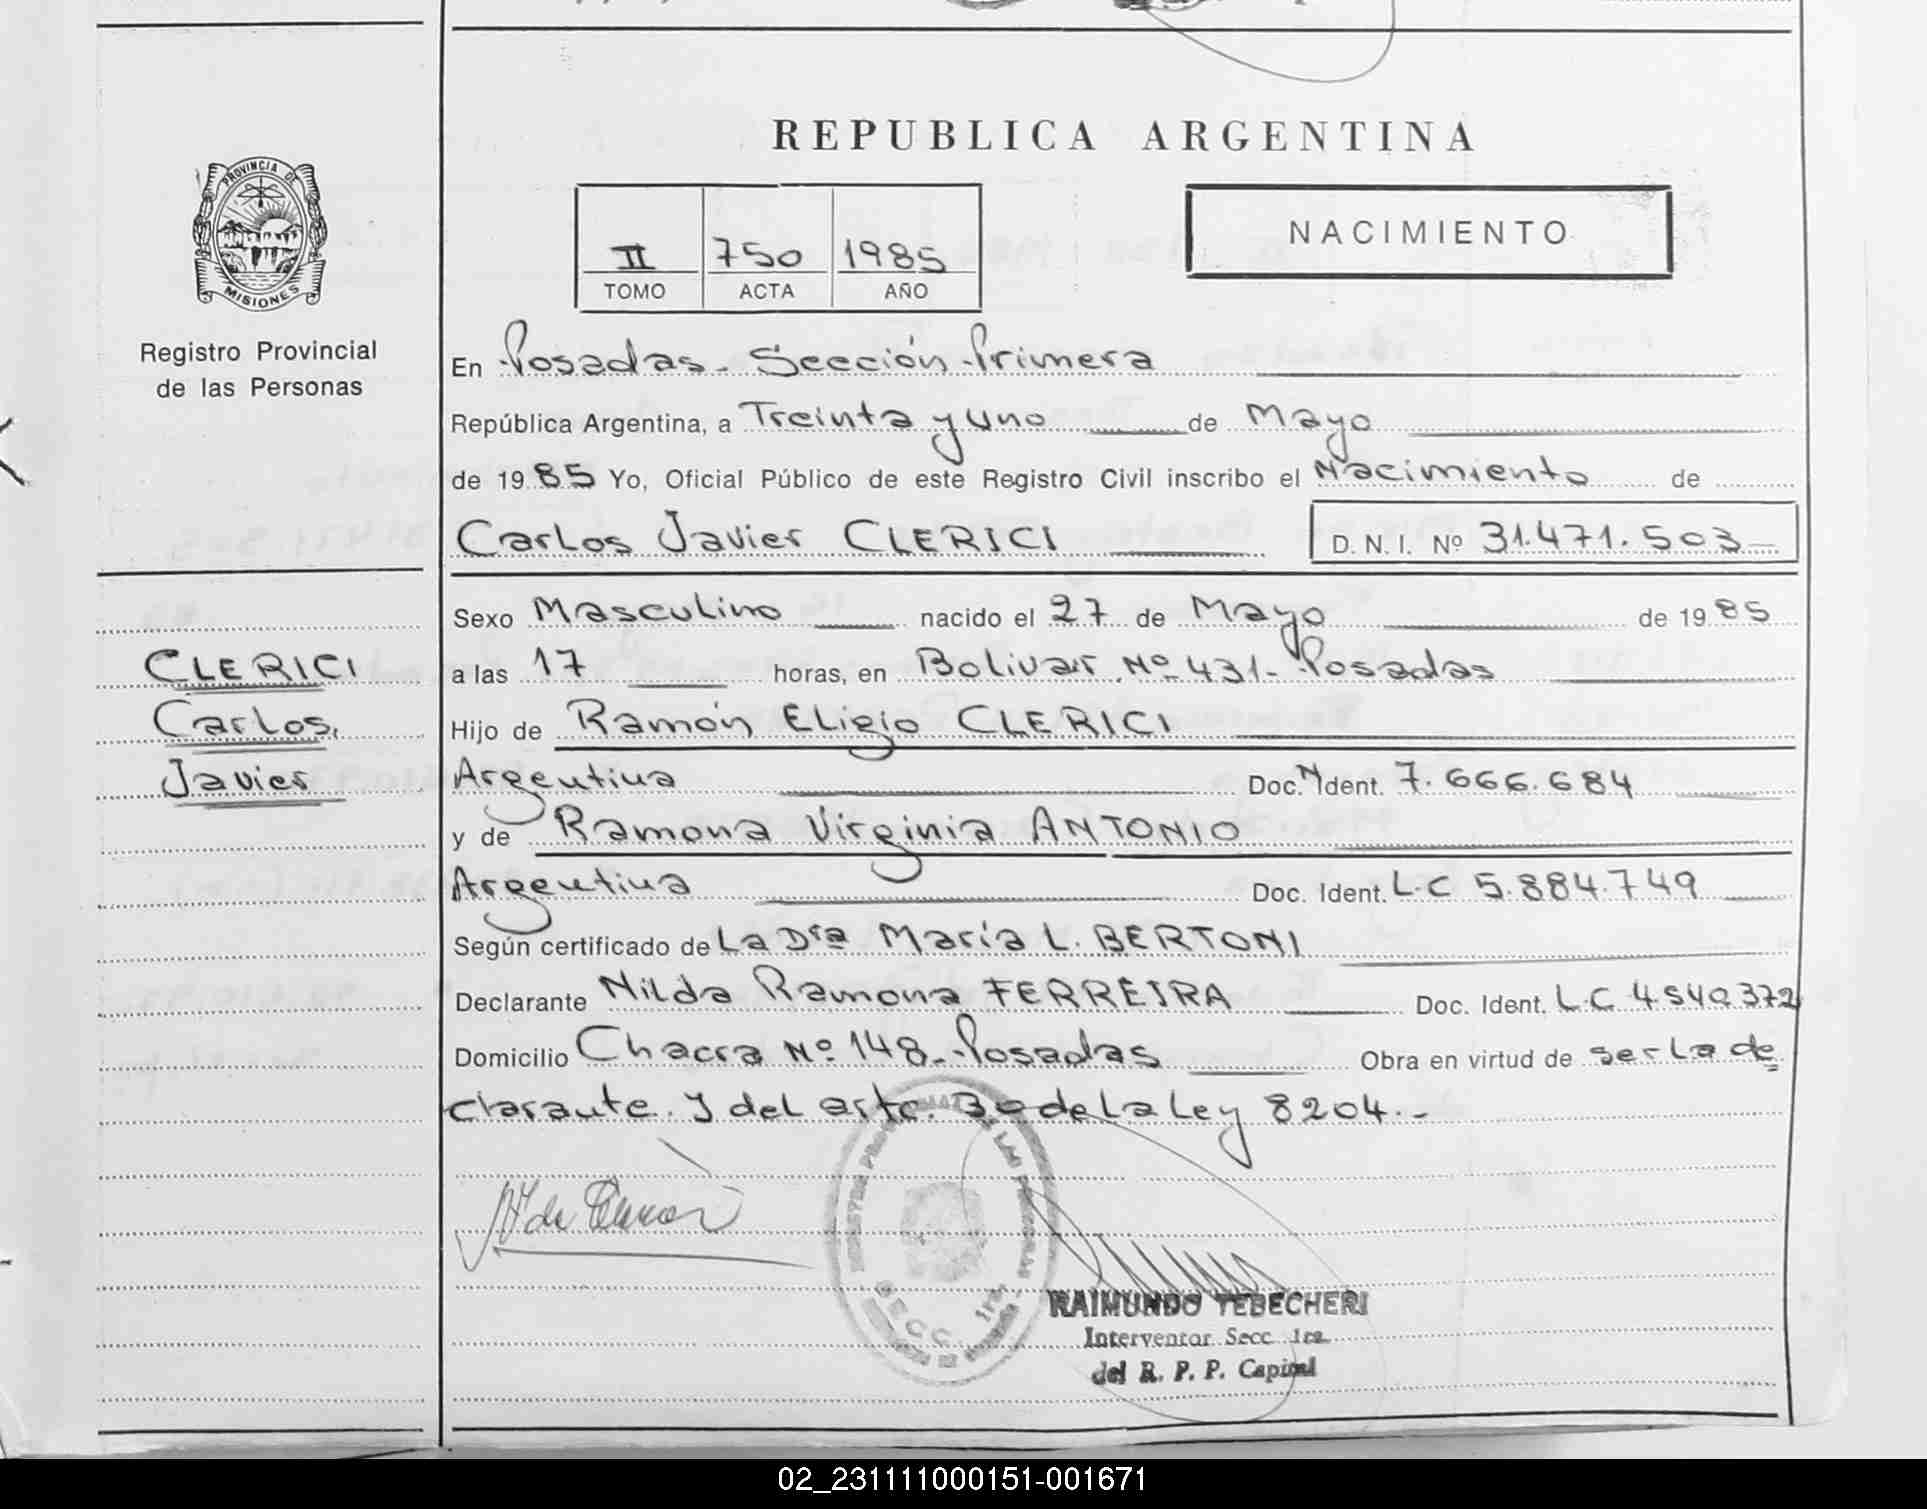 REPUBLICA ARGENTINA
PROVINCIA DE
MISIONES
Registro Provincial
de las Personas
NACIMIENTO
II 750 1985
TOMO ACTA AÑO
En Posadas - Sección Primera
República Argentina, a Treinta y uno de Mayo
de 1985 Yo, Oficial Público de este Registro Civil inscribo el Nacimiento de
Carlos Javier CLERICI D. N. I. Nº 31.471.503
CLERICI
Carlos
Javier
Sexo Masculino nacido el 27 de Mayo de 1985
a las 17 horas, en Bolivar Nº 431 - Posadas
Hijo de Ramón Eligio CLERICI
Argentina Doc. N Ident. 7.666.684
y de Ramona Virginia ANTONIO
Argentina Doc. Ident. L.C 5.884.749
Según certificado de La Dra María L. BERTONI
Declarante Nilda Ramona FERREIRA Doc. Ident. L.C 4.540.372
Domicilio Chacra Nº 148 - Posadas Obra en virtud de ser La de
clarante y del artc. 30 de La Ley 8204.-
SECC. 1ra.
RAIMUNDO TEBECHERI
Interventor Secc 1ra.
del R. P. P. Capital
02_231111000151-001671